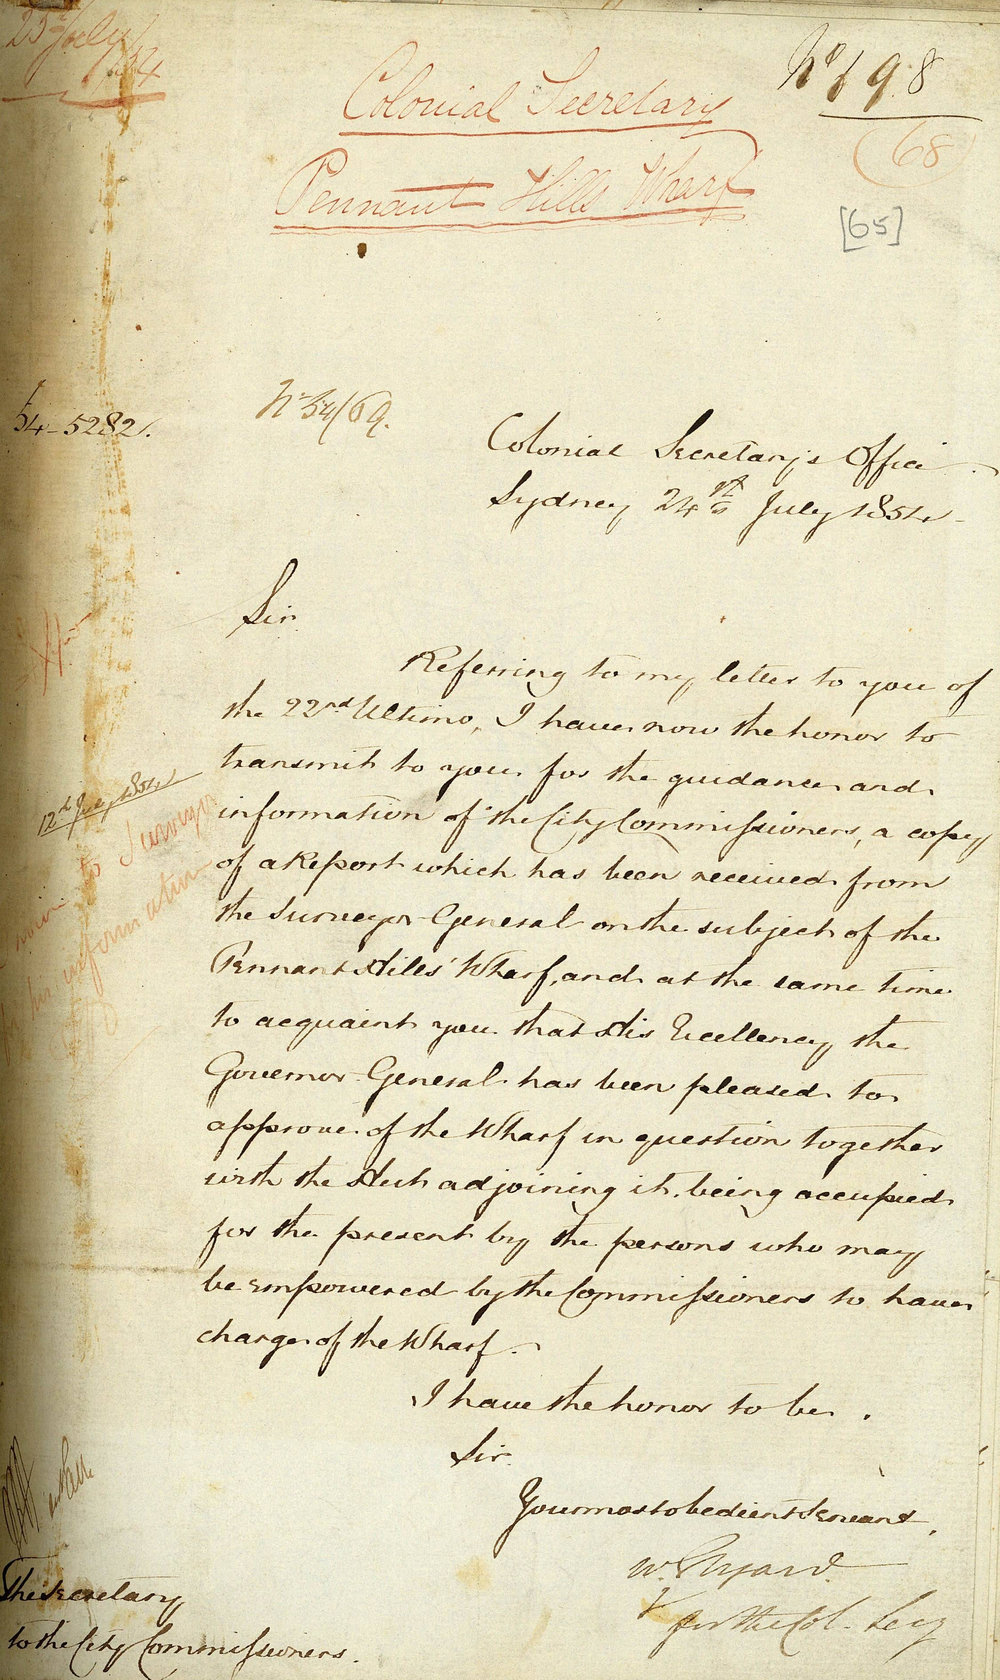 25th July
1854
No 698
Colonial Secretary
(68)
Pennant Hills Wharf
[65]
54-5282.
No 54/69.
Colonial Secretary's Office
Sydney 24th July 1854
Sir
Referring to my letter to you of
the 22nd Ultimo, I have now the honor to
transmit to you for the guidance and
12th July 1854
information of the City Commissioners, a copy
to Surveyor
of a Report which has been received from
for information
the Surveyor General on the subject of the
Pennant Hills' Wharf, and at the same time
to acquaint you that His Excellency the
Governor General has been pleased to
approve of the Wharf in question together
with the Hut adjoining it, being occupied
for the present by the persons who may
be empowered by the Commissioners to have
charge of the Wharf.
I have the honor to be.
Sir
Your most obedient Servant,
W. Elyard
for the Col. Secy
The Secretary
to the City Commissioners.